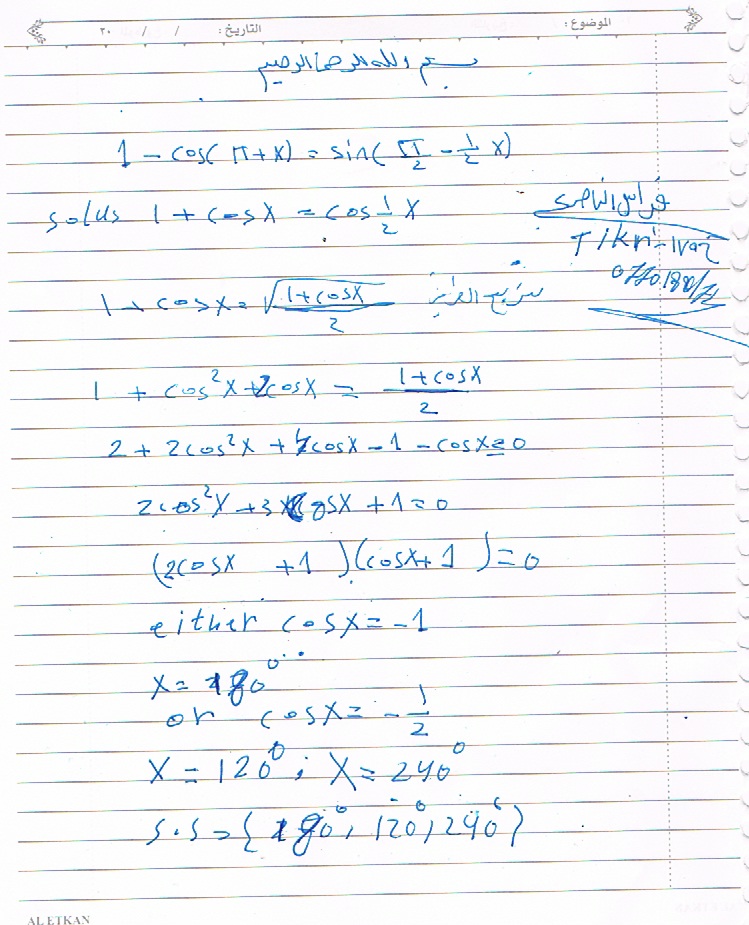 الموضوع : التاريخ : / / ٢٠
بسم الله الرحمن الرحيم
1 - cos( π + x) = sin( π/2 - 1/2 x)
فراس الناصري
solus 1 + cosx = cos 1/2 x
Tikrit - Iraq
1 + cosx = √(1+cosx)/2 تربيع الطرفين
1 + cos²x + 2cosx = (1+cosx)/2
2 + 2cos²x + 4cosx - 1 - cosx = 0
2cos²x + 3cosx + 1 = 0
(2cosx + 1)(cosx + 1) = 0
either cosx = -1
x = 180°
or cosx = - 1/2
x = 120° ; x = 240°
S.S = { 180°, 120°, 240° }
AL ETKAN